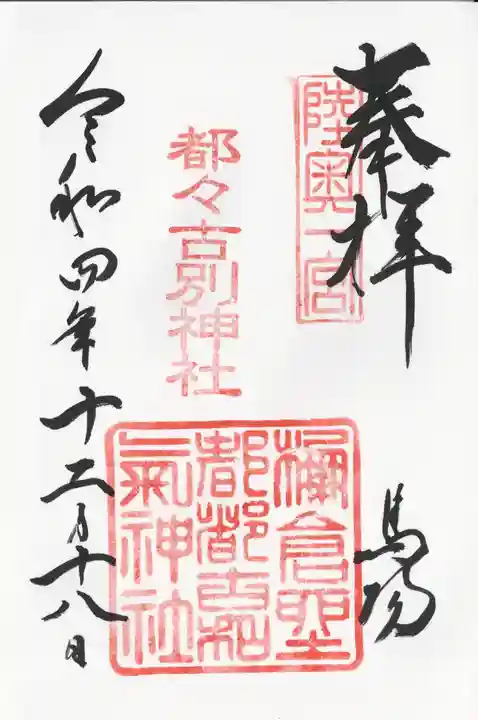 奉拝
陸奥一宮
馬場
都々古別神社
都都古和
氣神社
令和四年十二月十八日